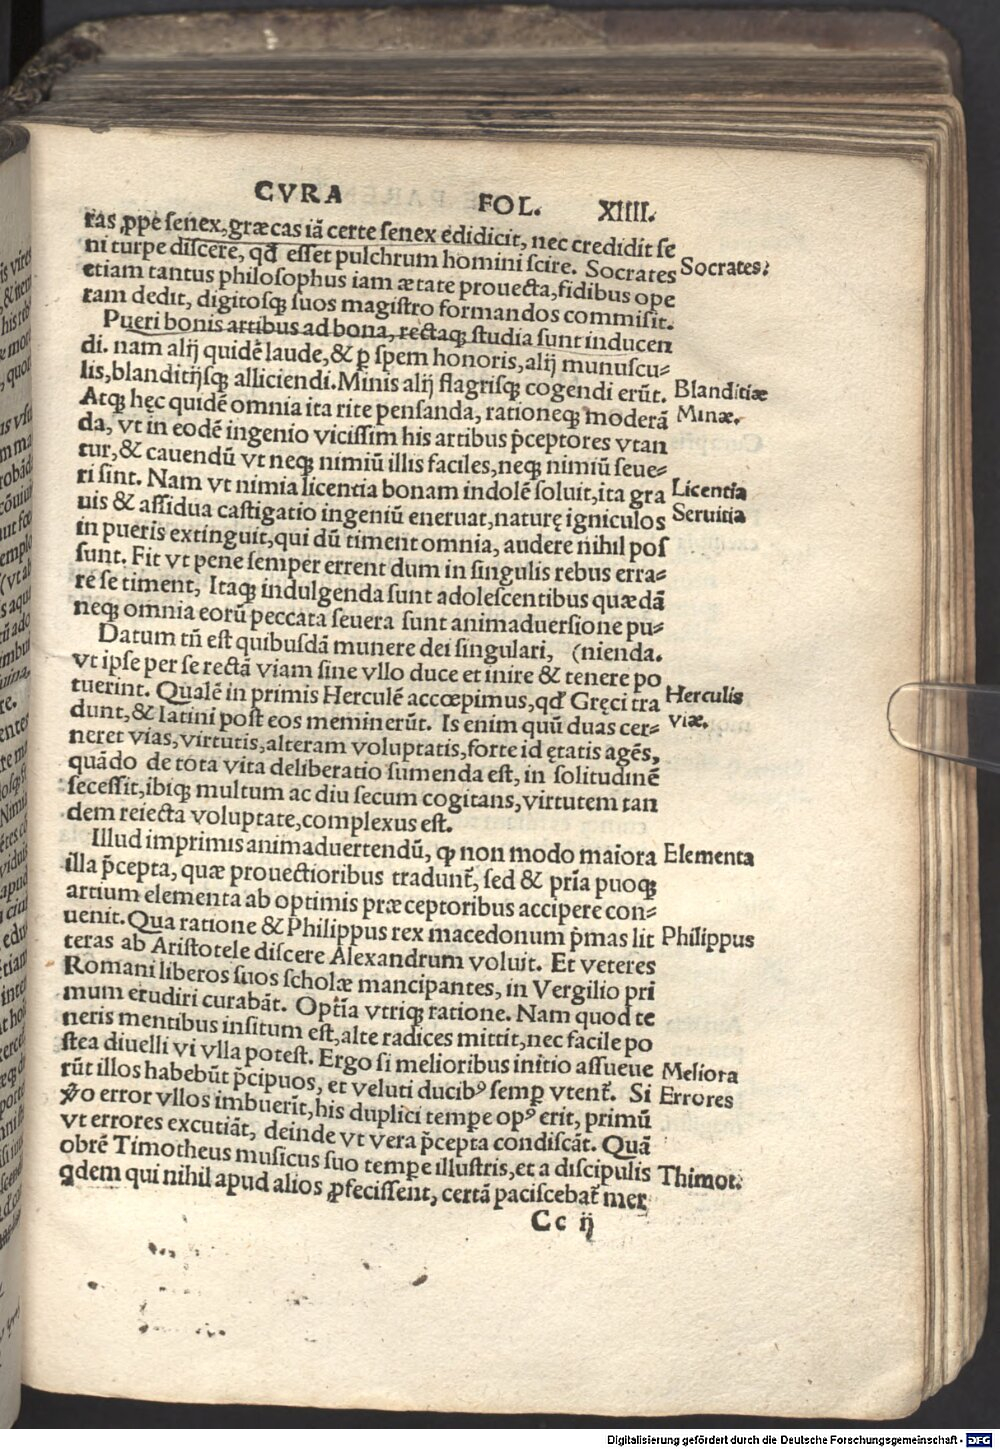 CVRA FOL. XIIII.
ras ꝓpe senex, græcas iã certe senex edidicit, nec credidit se
ni turpe discere, qđ esset pulchrum homini scire. Socrates
Socrates:
etiam tantus philosophus iam ætate prouecta, fidibus ope
ram dedit, digitosꝗ suos magistro formandos commisit.
Pueri bonis artibus ad bona, rectaꝗ studia sunt inducen
di. nam alij quidẽ laude, & ꝑ spem honoris, alij munuscu⸗
lis, blanditijsꝗ alliciendi. Minis alij flagrisꝗ cogendi erũt.
Blanditiæ
Atꝗ hęc quidẽ omnia ita rite pensanda, rationeꝗ moderã
Minæ.
da, vt in eodẽ ingenio vicissim his artibus p̃ceptores vtan
tur, & cauendũ vt neꝗ nimiũ illis faciles, neꝗ nimiũ seue⸗
ri sint. Nam vt nimia licentia bonam indolẽ soluit, ita gra
Licentia
uis & assidua castigatio ingeniũ eneruat, naturę igniculos
Seruitia
in pueris extinguit, qui dũ timent omnia, audere nihil pos
sunt. Fit vt pene semper errent dum in singulis rebus erra⸗
re se timent, Itaꝗ indulgenda sunt adolescentibus quædã
neꝗ omnia eorũ peccata seuera sunt animaduersione pu⸗
Datum tñ est quibusdã munere dei singulari, (nienda.
vt ipse per se rectã viam sine vllo duce et inire & tenere po
tuerint. Qualẽ in primis Herculẽ accœpimus, qđ Gręci tra
Herculis
dunt, & latini post eos meminerũt. Is enim quũ duas cer⸗
viæ.
neret vias, virtutis, alteram voluptatis, forte id ętatis agẽs,
quãdo de tota vita deliberatio sumenda est, in solitudinẽ
secessit, ibiꝗ multum ac diu secum cogitans, virtutem tan
dem reiecta voluptate, complexus est.
Illud imprimis animaduertendũ, ꝙ non modo maiora
Elementa
illa p̃cepta, quæ prouectioribus tradunt᷑, sed & pria puoꝗ
artium elementa ab optimis præceptoribus accipere con⸗
uenit. Qua ratione & Philippus rex macedonum p̃mas lit
Philippus
teras ab Aristotele discere Alexandrum voluit. Et veteres
Romani liberos suos scholæ mancipantes, in Vergilio pri
mum erudiri curabãt. Optĩa vtriꝗ ratione. Nam quod te
neris mentibus insitum est, alte radices mittit, nec facile po
stea diuelli vi vlla potest. Ergo si melioribus initio assueue
Meliora
rũt illos habebũt p̃cipuos, et veluti ducibꝰ semꝑ vtent᷑. Si
Errores
ꝟo error vllos imbuerit, his duplici tempe opꝰ erit, primũ
vt errores excutiãt, deinde vt vera p̃cepta condiscãt. Quã
obrẽ Timotheus musicus suo tempe illustris, et a discipulis
Thimot:
ꝗdem qui nihil apud alios ꝓfecissent, certã paciscebat᷑ mer
Cc ij
Digitalisierung gefördert durch die Deutsche Forschungsgemeinschaft - DFG